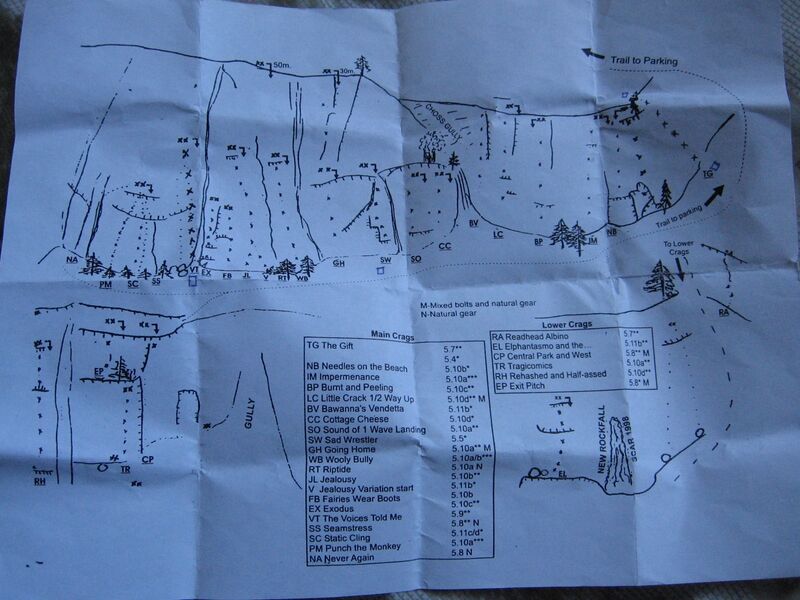 Trail to Parking
xx 50m.
xx 30m.
CHOSS GULLY
TG
Trail to parking
NA
PM
SC
SS
VT
EX
FB
JL
V
RT
WB
GH
SW
SO
CC
BV
LC
BP
JM
NB
To Lower
Crags
RA
M-Mixed bolts and natural gear
N-Natural gear
Main Crags
TG The Gift 5.7**
5.4*
NB Needles on the Beach 5.10b*
IM Impermenance 5.10a***
BP Burnt and Peeling 5.10c**
LC Little Crack 1/2 Way Up 5.10d** M
BV Bawanna's Vendetta 5.11b*
CC Cottage Cheese 5.10d*
SO Sound of 1 Wave Landing 5.10a**
SW Sad Wrestler 5.5*
GH Going Home 5.10a** M
WB Wooly Bully 5.10a/b***
RT Riptide 5.10a N
JL Jealousy 5.10b**
V Jealousy Variation start 5.11b*
FB Fairies Wear Boots 5.10b
EX Exodus 5.10c**
VT The Voices Told Me 5.9**
SS Seamstress 5.8** N
SC Static Cling 5.11c/d*
PM Punch the Monkey 5.10a***
NA Never Again 5.8 N
Lower Crags
RA Readhead Albino 5.7**
EL Elphantasmo and the... 5.11b**
CP Central Park and West 5.8** M
TR Tragicomics 5.10a**
RH Rehashed and Half-assed 5.10d**
EP Exit Pitch 5.8* M
EP
RH
TR
CP
GULLY
EL
NEW ROCKFALL
SCAR 1998